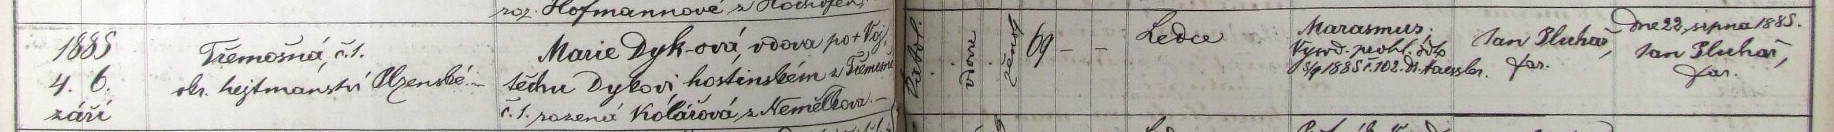 roz. Hofmannové z Hochofen.
1885
4. 6.
září
Třemošná, č. 1.
okr. hejtmanství Plzenské.–
Marie Dyk-ová, vdova po † Voj
těchu Dykovi, hostinském z Třemošné
č. 1. rozená Kolářová z Nemělkova.–
Katol.
vdova
ženský
69 – –
Ledce
Marasmus,
1885 č. 102.
Jan Pluhař,
far.
Dne 22. srpna 1885.
Jan Pluhař,
far.